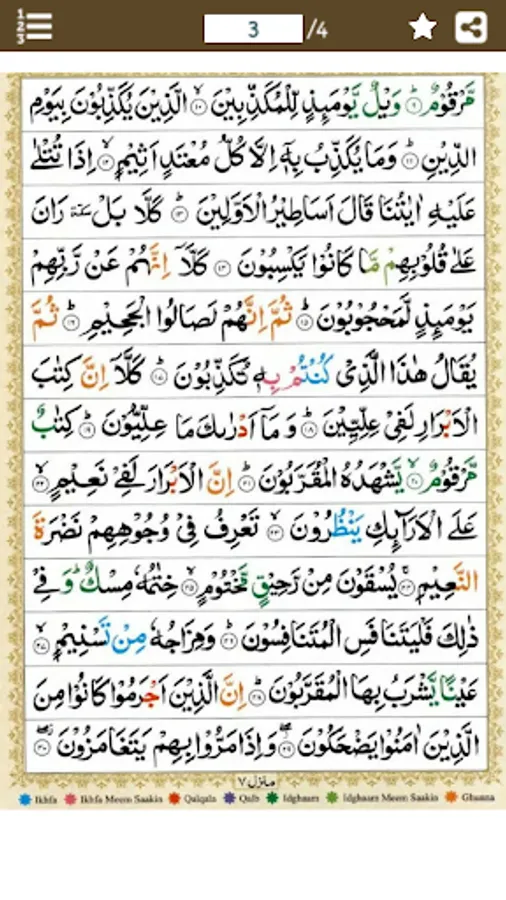 3 /4
مَّرْقُوْمٌ ۙ﴿۹﴾ وَيْلٌ يَّوْمَئِذٍ لِّلْمُكَذِّبِيْنَ ۙ﴿۱۰﴾ الَّذِيْنَ يُكَذِّبُوْنَ بِيَوْمِ
الدِّيْنِ ؕ﴿۱۱﴾ وَمَا يُكَذِّبُ بِهٖۤ اِلَّا كُلُّ مُعْتَدٍ اَثِيْمٍ ۙ﴿۱۲﴾ اِذَا تُتْلٰى
عَلَيْهِ اٰيٰتُنَا قَالَ اَسَاطِيْرُ الْاَوَّلِيْنَ ؕ﴿۱۳﴾ كَلَّا بَلْ ٚ رَانَ
عَلٰى قُلُوْبِهِمْ مَّا كَانُوْا يَكْسِبُوْنَ ﴿۱۴﴾ كَلَّاۤ اِنَّهُمْ عَنْ رَّبِّهِمْ
يَوْمَئِذٍ لَّمَحْجُوْبُوْنَ ؕ﴿۱۵﴾ ثُمَّ اِنَّهُمْ لَصَالُوا الْجَحِيْمِ ؕ﴿۱۶﴾ ثُمَّ
يُقَالُ هٰذَا الَّذِىْ كُنْتُمْ بِهٖ تُكَذِّبُوْنَ ؕ﴿۱۷﴾ كَلَّاۤ اِنَّ كِتٰبَ
الْاَبْرَارِ لَفِىْ عِلِّيِّيْنَ ؕ﴿۱۸﴾ وَمَاۤ اَدْرٰىكَ مَا عِلِّيُّوْنَ ؕ﴿۱۹﴾ كِتٰبٌ
مَّرْقُوْمٌ ۙ﴿۲۰﴾ يَّشْهَدُهُ الْمُقَرَّبُوْنَ ؕ﴿۲۱﴾ اِنَّ الْاَبْرَارَ لَفِىْ نَعِيْمٍ ۙ﴿۲۲﴾
عَلَى الْاَرَآئِكِ يَنْظُرُوْنَ ۙ﴿۲۳﴾ تَعْرِفُ فِىْ وُجُوْهِهِمْ نَضْرَةَ
النَّعِيْمِ ۚ﴿۲۴﴾ يُسْقَوْنَ مِنْ رَّحِيْقٍ مَّخْتُوْمٍ ۙ﴿۲۵﴾ خِتٰمُهٗ مِسْكٌ ؕ وَفِىْ
ذٰلِكَ فَلْيَتَنَافَسِ الْمُتَنَافِسُوْنَ ؕ﴿۲۶﴾ وَمِزَاجُهٗ مِنْ تَسْنِيْمٍ ۙ﴿۲۷﴾
عَيْنًا يَّشْرَبُ بِهَا الْمُقَرَّبُوْنَ ؕ﴿۲۸﴾ اِنَّ الَّذِيْنَ اَجْرَمُوْا كَانُوْا مِنَ
الَّذِيْنَ اٰمَنُوْا يَضْحَكُوْنَ ۖ﴿۲۹﴾ وَاِذَا مَرُّوْا بِهِمْ يَتَغَامَزُوْنَ ۖ﴿۳۰﴾
مَنْزِل ٧
Ikhfa Ikhfa Meem Saakin Qalqala Qalb Idghaam Idghaam Meem Saakin Ghunna